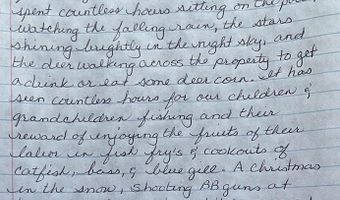 spent countless hours sitting on the
watching the falling rain, the stars
shining brightly in the night sky, and
the deer walking across the property to get
a drink or eat some deer corn. It has
seen countless hours for our children &
grandchildren fishing and their
reward of enjoying the fruits of their
labor in fish fry's & cookouts of
catfish, bass, & blue gill. A Christmas
in the snow, shooting BB guns at